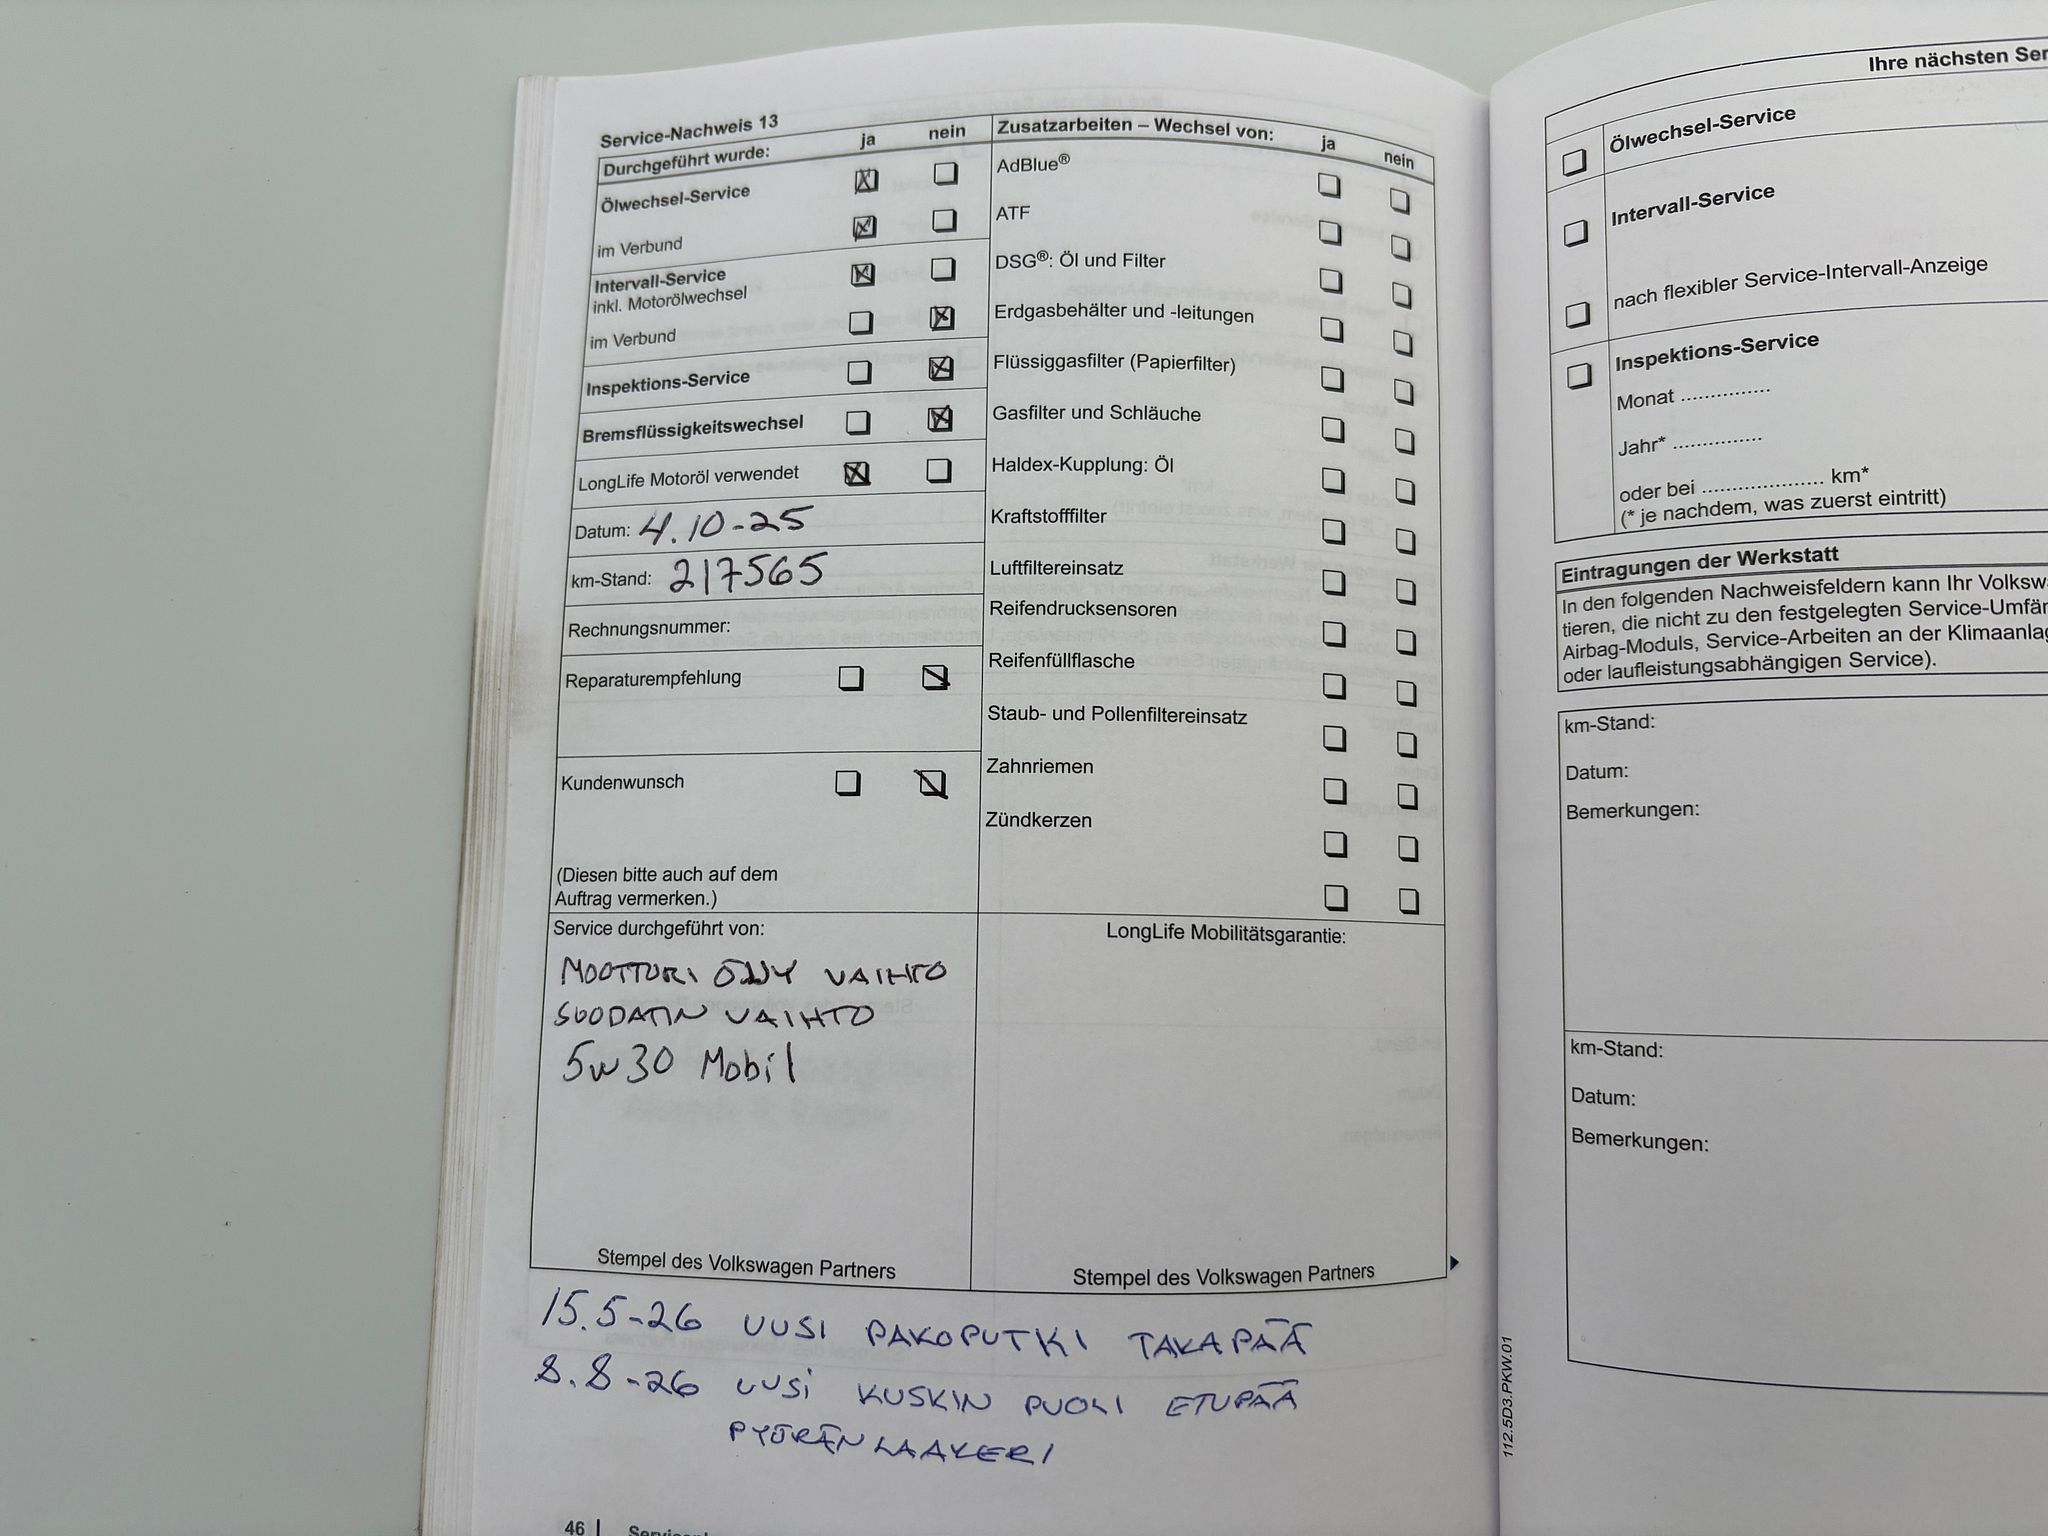 Service-Nachweis 13
Durchgeführt wurde: ja nein
Ölwechsel-Service
im Verbund
Intervall-Service
inkl. Motorölwechsel
im Verbund
Inspektions-Service
Bremsflüssigkeitswechsel
LongLife Motoröl verwendet
Datum: 4.10-25
km-Stand: 217565
Rechnungsnummer:
Reparaturempfehlung
Kundenwunsch
(Diesen bitte auch auf dem
Auftrag vermerken.)
Service durchgeführt von:
MOOTTORI ÖLJY VAIHTO
SUODATIN VAIHTO
5w30 Mobil
Stempel des Volkswagen Partners
Zusatzarbeiten – Wechsel von: ja nein
AdBlue®
ATF
DSG®: Öl und Filter
Erdgasbehälter und -leitungen
Flüssiggasfilter (Papierfilter)
Gasfilter und Schläuche
Haldex-Kupplung: Öl
Kraftstofffilter
Luftfiltereinsatz
Reifendrucksensoren
Reifenfüllflasche
Staub- und Pollenfiltereinsatz
Zahnriemen
Zündkerzen
LongLife Mobilitätsgarantie:
Stempel des Volkswagen Partners
15.5-26 UUSI PAKOPUTKI TAKAPÄÄ
8.8-26 UUSi KUSKIN PUOLI ETUPÄÄ
PYÖRÄN LAAKERI
46
Ihre nächsten Ser
Ölwechsel-Service
Intervall-Service
nach flexibler Service-Intervall-Anzeige
Inspektions-Service
Monat ...............
Jahr* ...............
oder bei .................... km*
(* je nachdem, was zuerst eintritt)
Eintragungen der Werkstatt
In den folgenden Nachweisfeldern kann Ihr Volksw
tieren, die nicht zu den festgelegten Service-Umfän
Airbag-Moduls, Service-Arbeiten an der Klimaanlag
oder laufleistungsabhängigen Service).
km-Stand:
Datum:
Bemerkungen:
km-Stand:
Datum:
Bemerkungen:
112.5D3.PKW.01